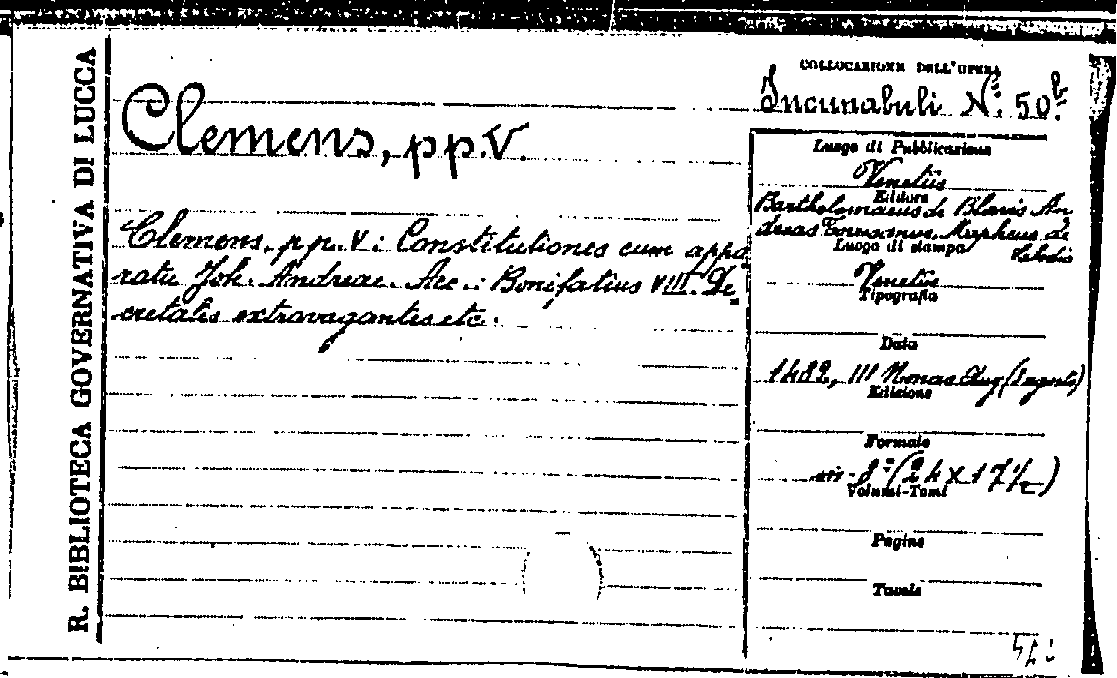 R. BIBLIOTECA GOVERNATIVA DI LUCCA
COLLOCAZIONE DELL'OPERA
Incunabuli N.º 50.b
Clemens, pp. V.
Clemens. pp. V : Constitutiones cum appa
ratu Joh. Andreae. Acc.: Bonifatius VIII. De=
cretalis extravagantes etc.
Luogo di Pubblicazione
Venetiis
Editore
Bartholomaeus de Blavis An
dreas Torresanus, Mapheus de
Luogo di stampa
Venetiis
Tipografia
Data
1482, III Nonas Aug (3 agosto)
Edizione
Formato
in-8º (24 X 17½)
Volumi-Tomi
Pagine
Tavole